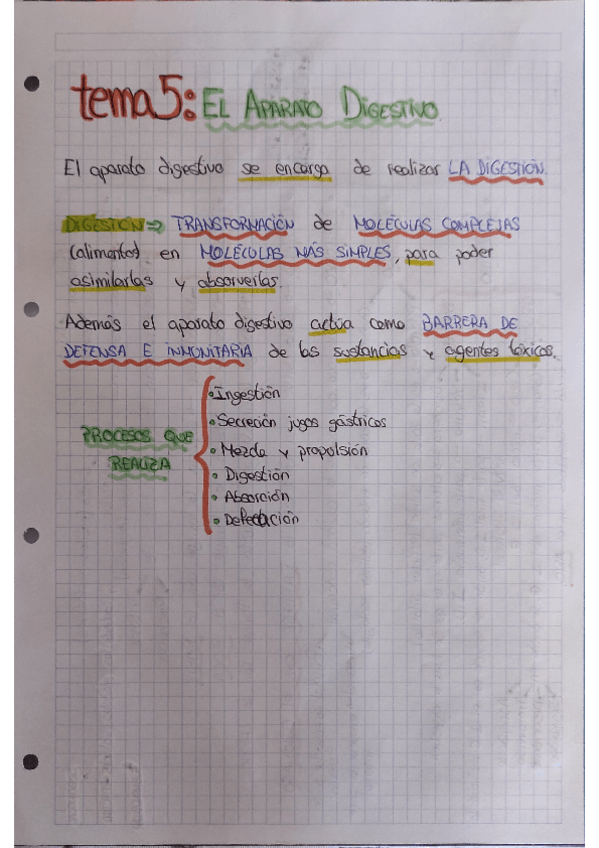 tema 5: EL APARATO DIGESTIVO
El aparato digestivo se encarga de realizar LA DIGESTIÓN.
DIGESTIÓN => TRANSFORMACIÓN de MOLÉCULAS COMPLEJAS
(alimentos) en MOLÉCULAS MÁS SIMPLES, para poder
asimilarlas y absorverlas.
Además el aparato digestivo actúa como BARRERA DE
DEFENSA E INMUNITARIA de las sustancias y agentes tóxicos.
PROCESOS QUE
REALIZA
• Ingestión
• Secreción jugos gástricos
• Mezcla y propulsión
• Digestión
• Absorción
• Defecación